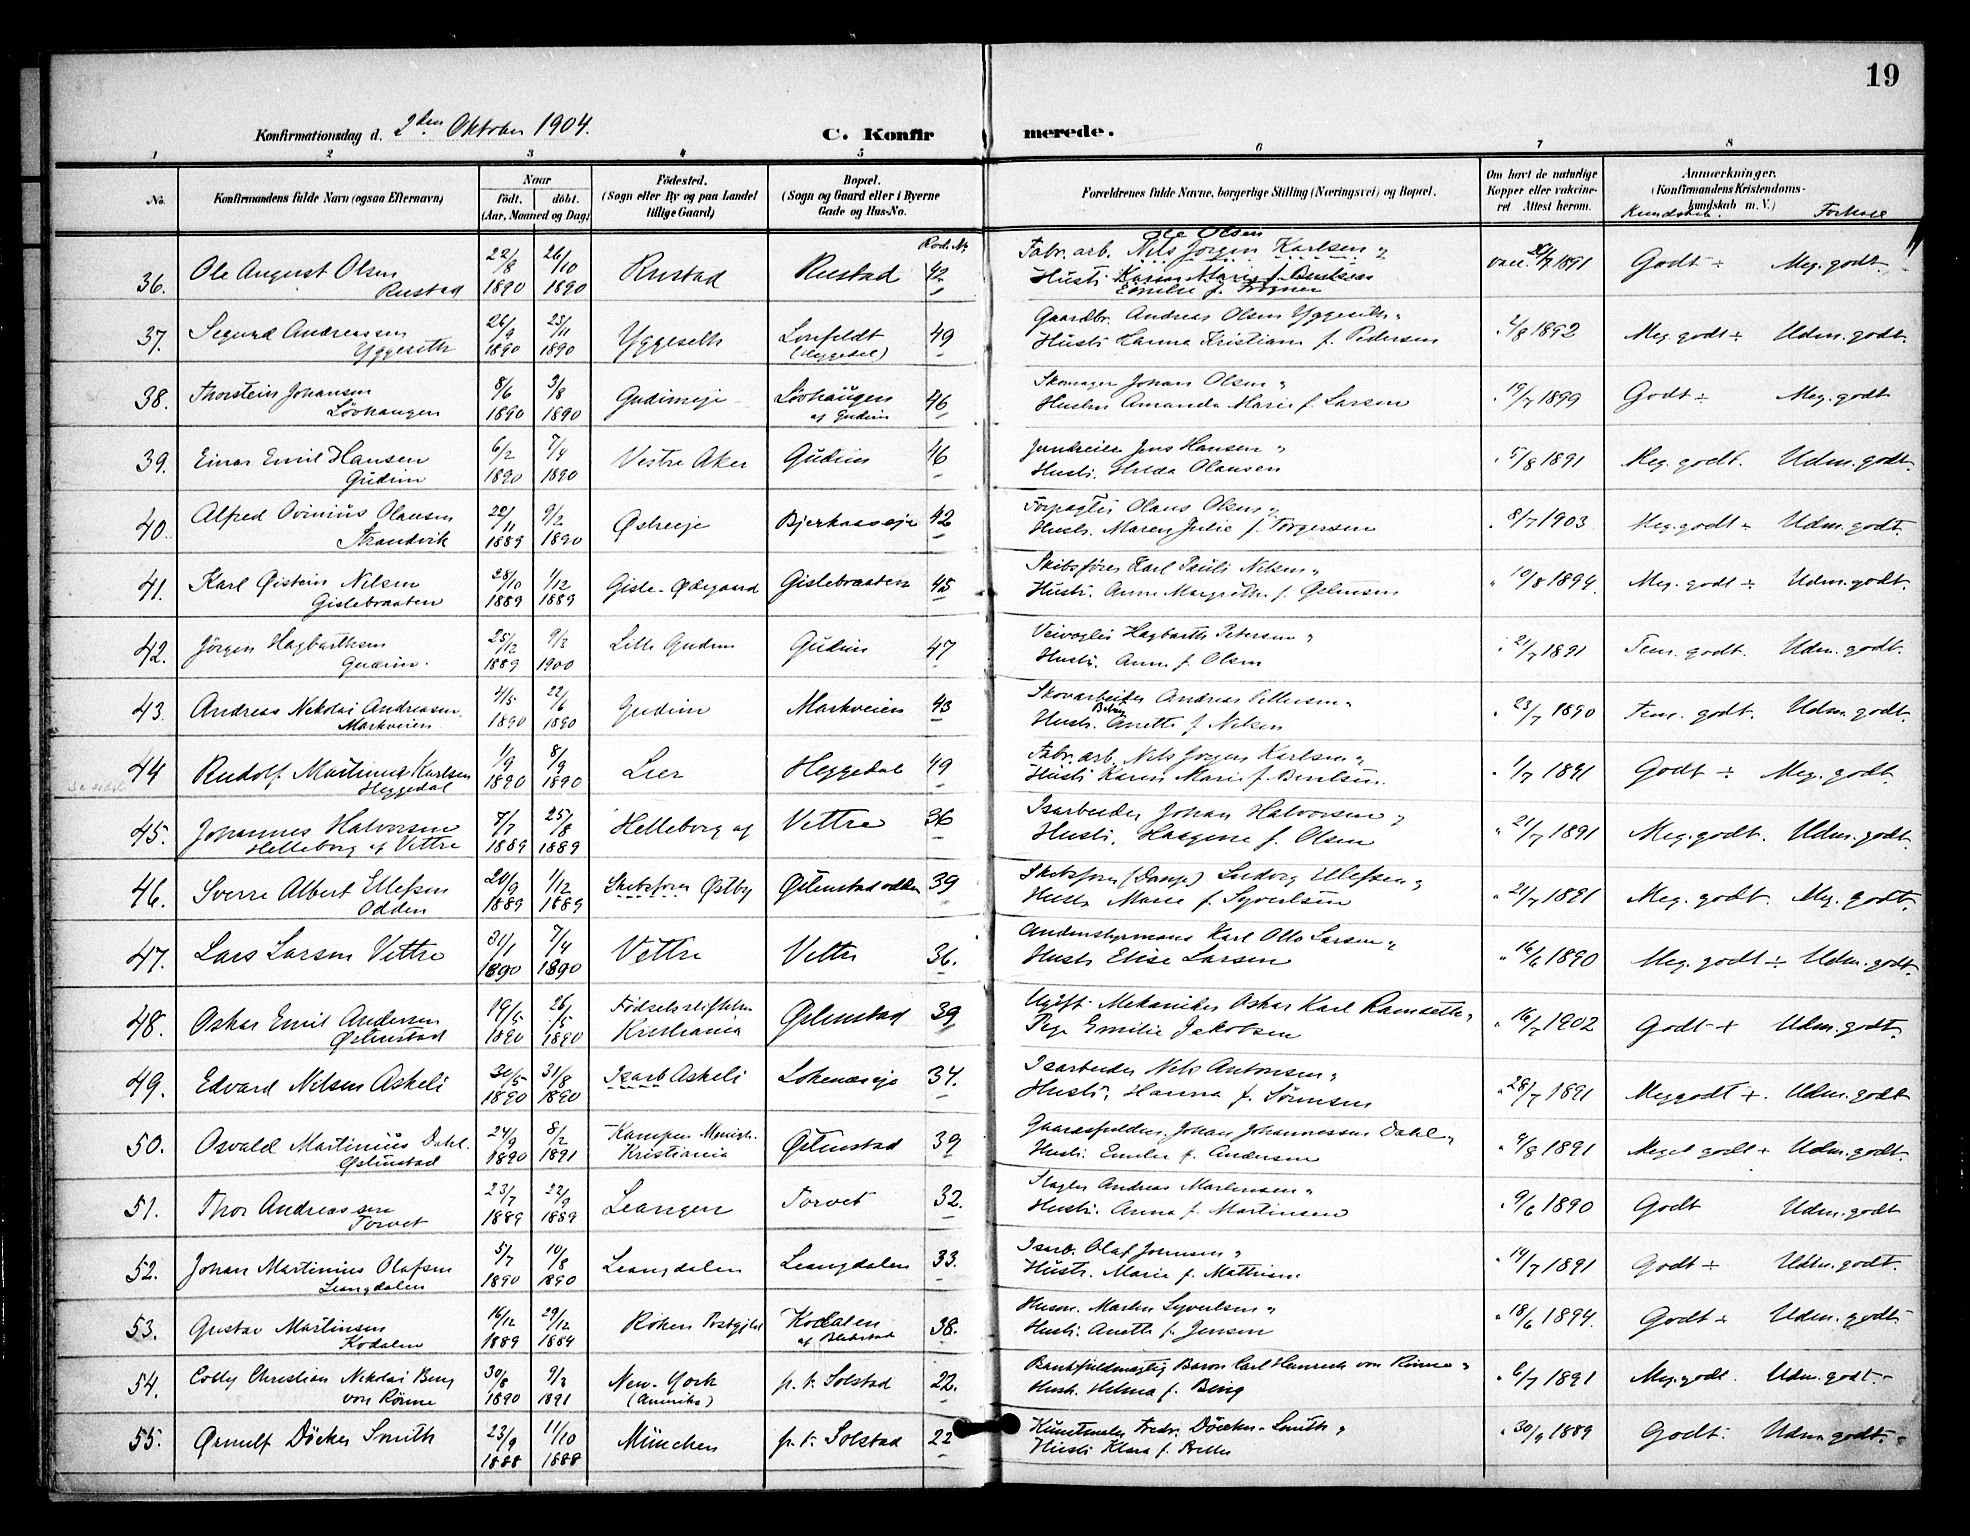 19
Konfirmationsdag d. 2den Oktober 1904.
C. Konfirmerede.
1 2 3 4 5 6 7 8
No. Konfirmandens fulde Navn (ogsaa Efternavn) Naar født, døbt. (Aar, Maaned og Dag) Fødested. (Sogn eller By og paa Landet tillige Gaard) Bopæl. (Sogn og Gaard eller i Byerne Gade og Hus-No. Forældrenes fulde Navne, borgerlige Stilling (Næringsvei) og Bopæl. Om havt de naturlige Kopper eller vaccineret Attest herom. Anmærkninger. (Konfirmandens Kristendomskundskab m. V.) Kundskab. Forhold
36. Ole August Olsen Rustad 22/8 1890 26/10 1890 Rustad Rustad 42 Fabr. arb. Nils Jørgen Karlsen Ole Olsen
Husti Karen Marie f. Emilie f. vacc. 1891 Godt ÷ Meg. godt.
37. Sigurd Andreassen Yggeseth 26/9 1890 23/11 1890 Yggeseth Lonfeldt (Heggedal) 49 Gaardbr. Andreas Olsen Yggeseth
Husti Hanna Kristiane f. Pedersen 2/8 1892 Meg. godt ÷ Udm. godt.
38. Thorstein Johansen Løvhaugen 8/6 1890 3/8 1890 Gudimeje Løvhaugen af Gudim 46 Skomager Johan Olsen
Hustru Amanda Marie f. Larsen 19/7 1899 Godt ÷ Meg. godt
39. Einar Emil Hansen Gudim 6/2 1890 7/4 1890 Vestre Aker Gudim 46 Jens Hansen
Husti. Hilda Olausen 5/8 1891 Meg. godt. Udm. godt.
40. Alfred Ovinius Olausen Strandvik 22/11 1889 9/2 1890 Østreeje Bjerkaaseje 42 Olaus Olsen
Hustr. Maren Julie f. Torgersen 8/7 1903 Meg. godt ÷ Udm. godt.
41. Karl Øistein Nilsen Gislebraaten 28/10 1889 1/12 1889 Gisle-Ødegaard Gislebraaten 45 Skibsfører Karl Pauli Nilsen
Husti. Anne Margrethe f. 19/8 1894 Meg. godt ÷ Udm. godt.
42. Jørgen Hagbarthsen Gudim. 25/12 1889 9/3 1900 Lille Gudim Gudim 47 Hagbarth Petersen
Husti. Anne f. Olsen 21/7 1891 Tem. godt. Udm. godt.
43. Andreas Nikolai Andreasen Markveien 4/5 1890 22/6 1890 Gudim Markveien 43 Skovarbeider Andreas Pettersen
Hustr. Anette f. Nilsen 23/7 1890 Tem. godt. Udm. godt.
44 Rudolf Martinius Karlsen Heggedal 1/9 1890 8/9 1890 Lier Heggedal 49 Fabr. arb. Nils Jørgen Karlsen
Husti Karen Marie f. Berntsen. 1/7 1891 Godt ÷ Meg. godt.
45. Johannes Halvorsen Helleborg af Vettre 7/7 1889 25/8 1889 Helleborg af Vettre 36 Isarbeider Johan Halvorsen
Husti. f. Olsen 21/7 1891 Meg. godt. Udm. godt.
46. Sverre Albert Ellefsen Odden 20/9 1889 1/12 1889 Skibsfører Østby Østenstadodden 39 Skibsfører (Damp) Ludvig Ellefsen
Hustr. Marie f. Syvertsen 21/7 1891 Meg. godt. Meg. godt.
47. Lars Larsen Vettre 31/1 1890 7/4 1890 Vettre Vettre 36. Andenstyrmand Karl Otto Larsen
Hustr. Elise Larsen 16/6 1890 Meg. godt ÷ Udm. godt.
48. Oskar Emil Andersen Østenstad 19/5 1890 26/5 1890 Fødselsstiftelsen Kristiania Østenstad 39 Ugift. Mekaniker Oskar Karl Ramsette
Pige Emilie Jakobsen 16/7 1902 Godt + Udm. godt.
49. Edvard Nilsen Askeli 30/5 1890 31/8 1890 Isarb Askeli Lokenæseje 34. Isarbeider Nils Antonsen
Husti. Hanna f. Sørensen 28/7 1891 Meg godt + Udm. godt
50. Osvald Martinius Dahl. Østenstad 24/9 1890 8/2 1891 Kampen Menigh. Kristiania Østenstad 39 Johan Johannessen Dahl
Husti. Emilie f. Andersen 9/8 1891 Meget godt + Udm. godt.
51. Thor Andreassen Torvet 23/7 1889 22/9 1889 Leangen Torvet 32. Slagter Andreas Martinsen
Hustr. Anna f. Martinsen 9/6 1890 Godt Udm. godt
52. Johan Martinius Olafsen Leangdalen 5/7 1890 10/8 1890 Leangdalen Leangdalen 33. Isarb. Olaf Johnsen
Hustr. Marie f. Mathisen 14/7 1891 Godt ÷ Udm. godt.
53. Gustav Martinsen Kodalen 16/12 1889 29/12 1884 Røken Postgjeld Kodalen af Blakstad 38. Husm. Martin Syvertsen
Husti. Anette f. Jensen 18/6 1894 Godt + Udm. godt.
54. Colly Christian Nikolai Bing von Rønne 30/8 1890 9/3 1891 New-York (Amerika) p. t. Solstad 22. Bankfuldmægtig Baron Carl Heinrich von Rönne
Hustr. Helma f. Bing 6/7 1891 Meg. godt. Udm. godt.
55. Ørnulf Döcker Smith 23/9 1888 11/10 1888 München p. t. Solstad 22 Kunstmaler Fredr. Döcker-Smith
Husti Klara f. 30/9 1889 Godt. Udm. godt.